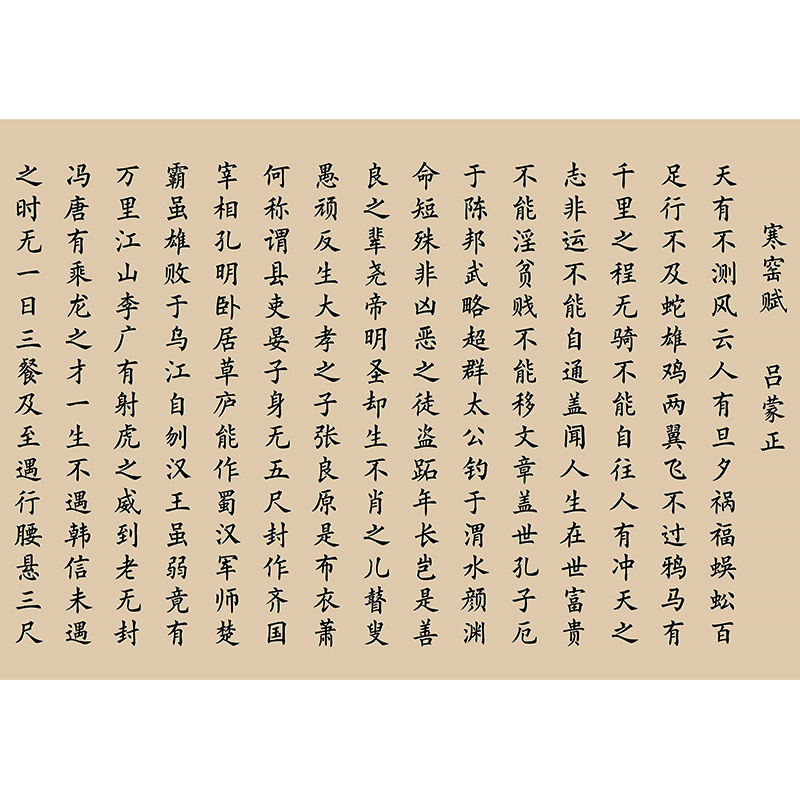 寒窑赋 吕蒙正
天有不测风云人有旦夕祸福蜈蚣百
足行不及蛇雄鸡两翼飞不过鸦马有
千里之程无骑不能自往人有冲天之
志非运不能自通盖闻人生在世富贵
不能淫贫贱不能移文章盖世孔子厄
于陈邦武略超群太公钓于渭水颜渊
命短殊非凶恶之徒盗跖年长岂是善
良之辈尧帝明圣却生不肖之儿瞽叟
愚顽反生大孝之子张良原是布衣萧
何称谓县吏晏子身无五尺封作齐国
宰相孔明卧居草庐能作蜀汉军师楚
霸虽雄败于乌江自刎汉王虽弱竟有
万里江山李广有射虎之威到老无封
冯唐有乘龙之才一生不遇韩信未遇
之时无一日三餐及至遇行腰悬三尺